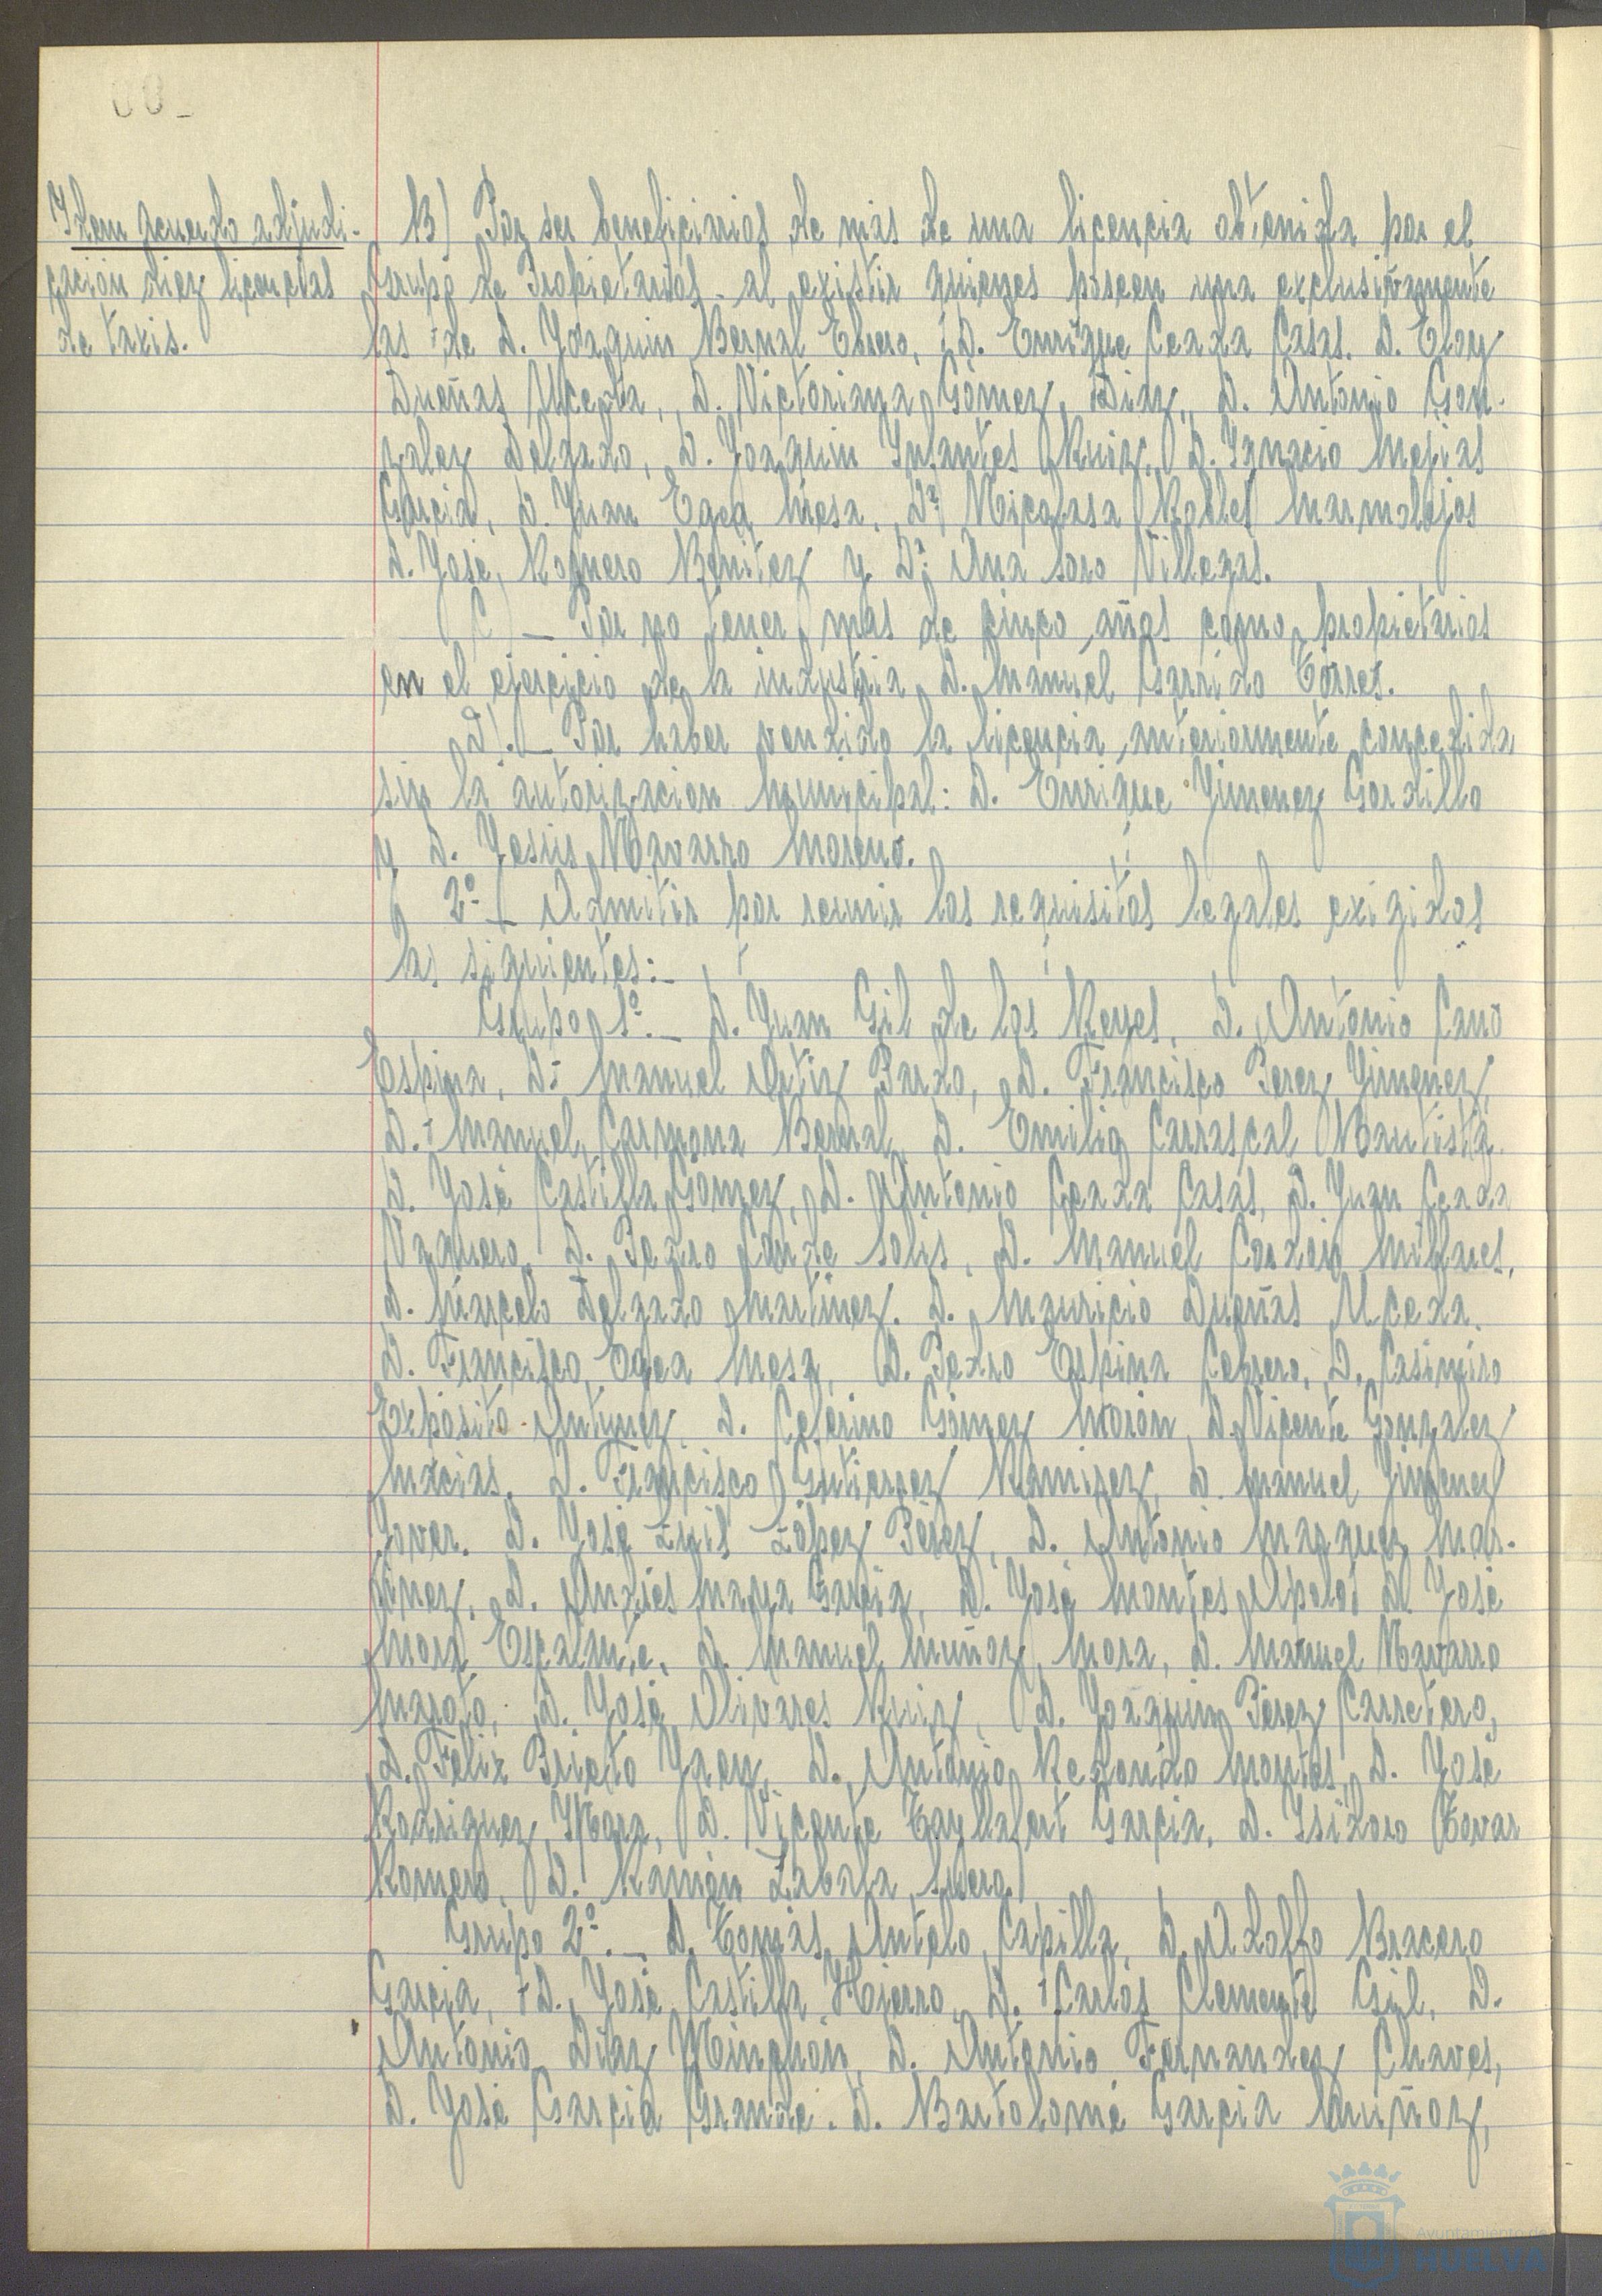 Item acuerdo adjudi-
cación diez licencias
de taxis.
B) Por ser beneficiarios de mas de una licencia obtenida por el
Grupo de Propietarios - al existir quienes poseen una exclusivamente
las de D. Joaquin Bernal Ebrero, D. Enrique Ceada Casas. D. Eloy
Dueñas Uceda, D. Victoriana Gómez Diaz, D. Antonio Gon-
zalez Delgado, D. Joaquin Infantes Ruiz, D. Ignacio Mesias
Garcia, D. Juan Egea Mesa, Dª Nicolasa Robles Marmolejos
D. José Romero Benitez y Dª Ana Soro Villegas.
C) _ Por no tener mas de cinco años como propietarios
en el ejercicio de la industria D. Manuel Garrido Torres.
D). _ Por haber vendido la licencia anteriormente concedida
sin la autorizacion Municipal: D. Enrique Jimenez Gordillo
y D. Jesús Navarro Moreno.
2º _ Admitir por reunir los requisitos legales exigidos
las siguientes:
Grupo 1º. _ D. Juan Gil de los Reyes, D. Antonio Cano
Espina, D. Manuel Ortiz Pardo, D. Francisco Perez Jimenez,
D. Manuel Carmona Bernal, D. Emilio Carrascal Bautista.
D. José Castilla Gómez, D. Antonio Ceada Casas, D. Juan Ceada
Vaquero, D. Pedro Conde Solis, D. Manuel Cordon Millares,
D. Marcelo Delgado Martinez. D. Mauricio Dueñas Uceda.
D. Francisco Egea Mesa, D. Pedro Espina Cebrero, D. Casimiro
Expósito Antunez, D. Ceferino Gómez Morón, D. Vicente Gonzalez
Macias, D. Francisco Gutierrez Ramirez, D. Manuel Jimenez
Jover. D. José Luis López Pérez, D. Antonio Marquez Mar-
tinez, D. Andrés Maya Garcia, D. José Montes D. José
Mora Escalante, D. Manuel Muñoz Mora, D. Manuel Navarro
Maroto, D. José Olivares Ruiz, D. Joaquin Pérez Carretero,
D. Felix Prieto D. Antonio Redondo Montes, D. José
Rodriguez D. Vicente Garcia, D. Isidoro Tovar
Romero, D. Ramón Zabala
Grupo 2º. _ D. Tomás Antelo Capilla, D. Adolfo Bracero
Garcia, D. José Castilla Hierro, D. Carlos Clemente Gil, D.
Antonio Diaz D. Antonio Fernandez Chaves,
D. José Garcia Grande. D. Bartolomé Garcia Muñoz,
Ayuntamiento de
HUELVA